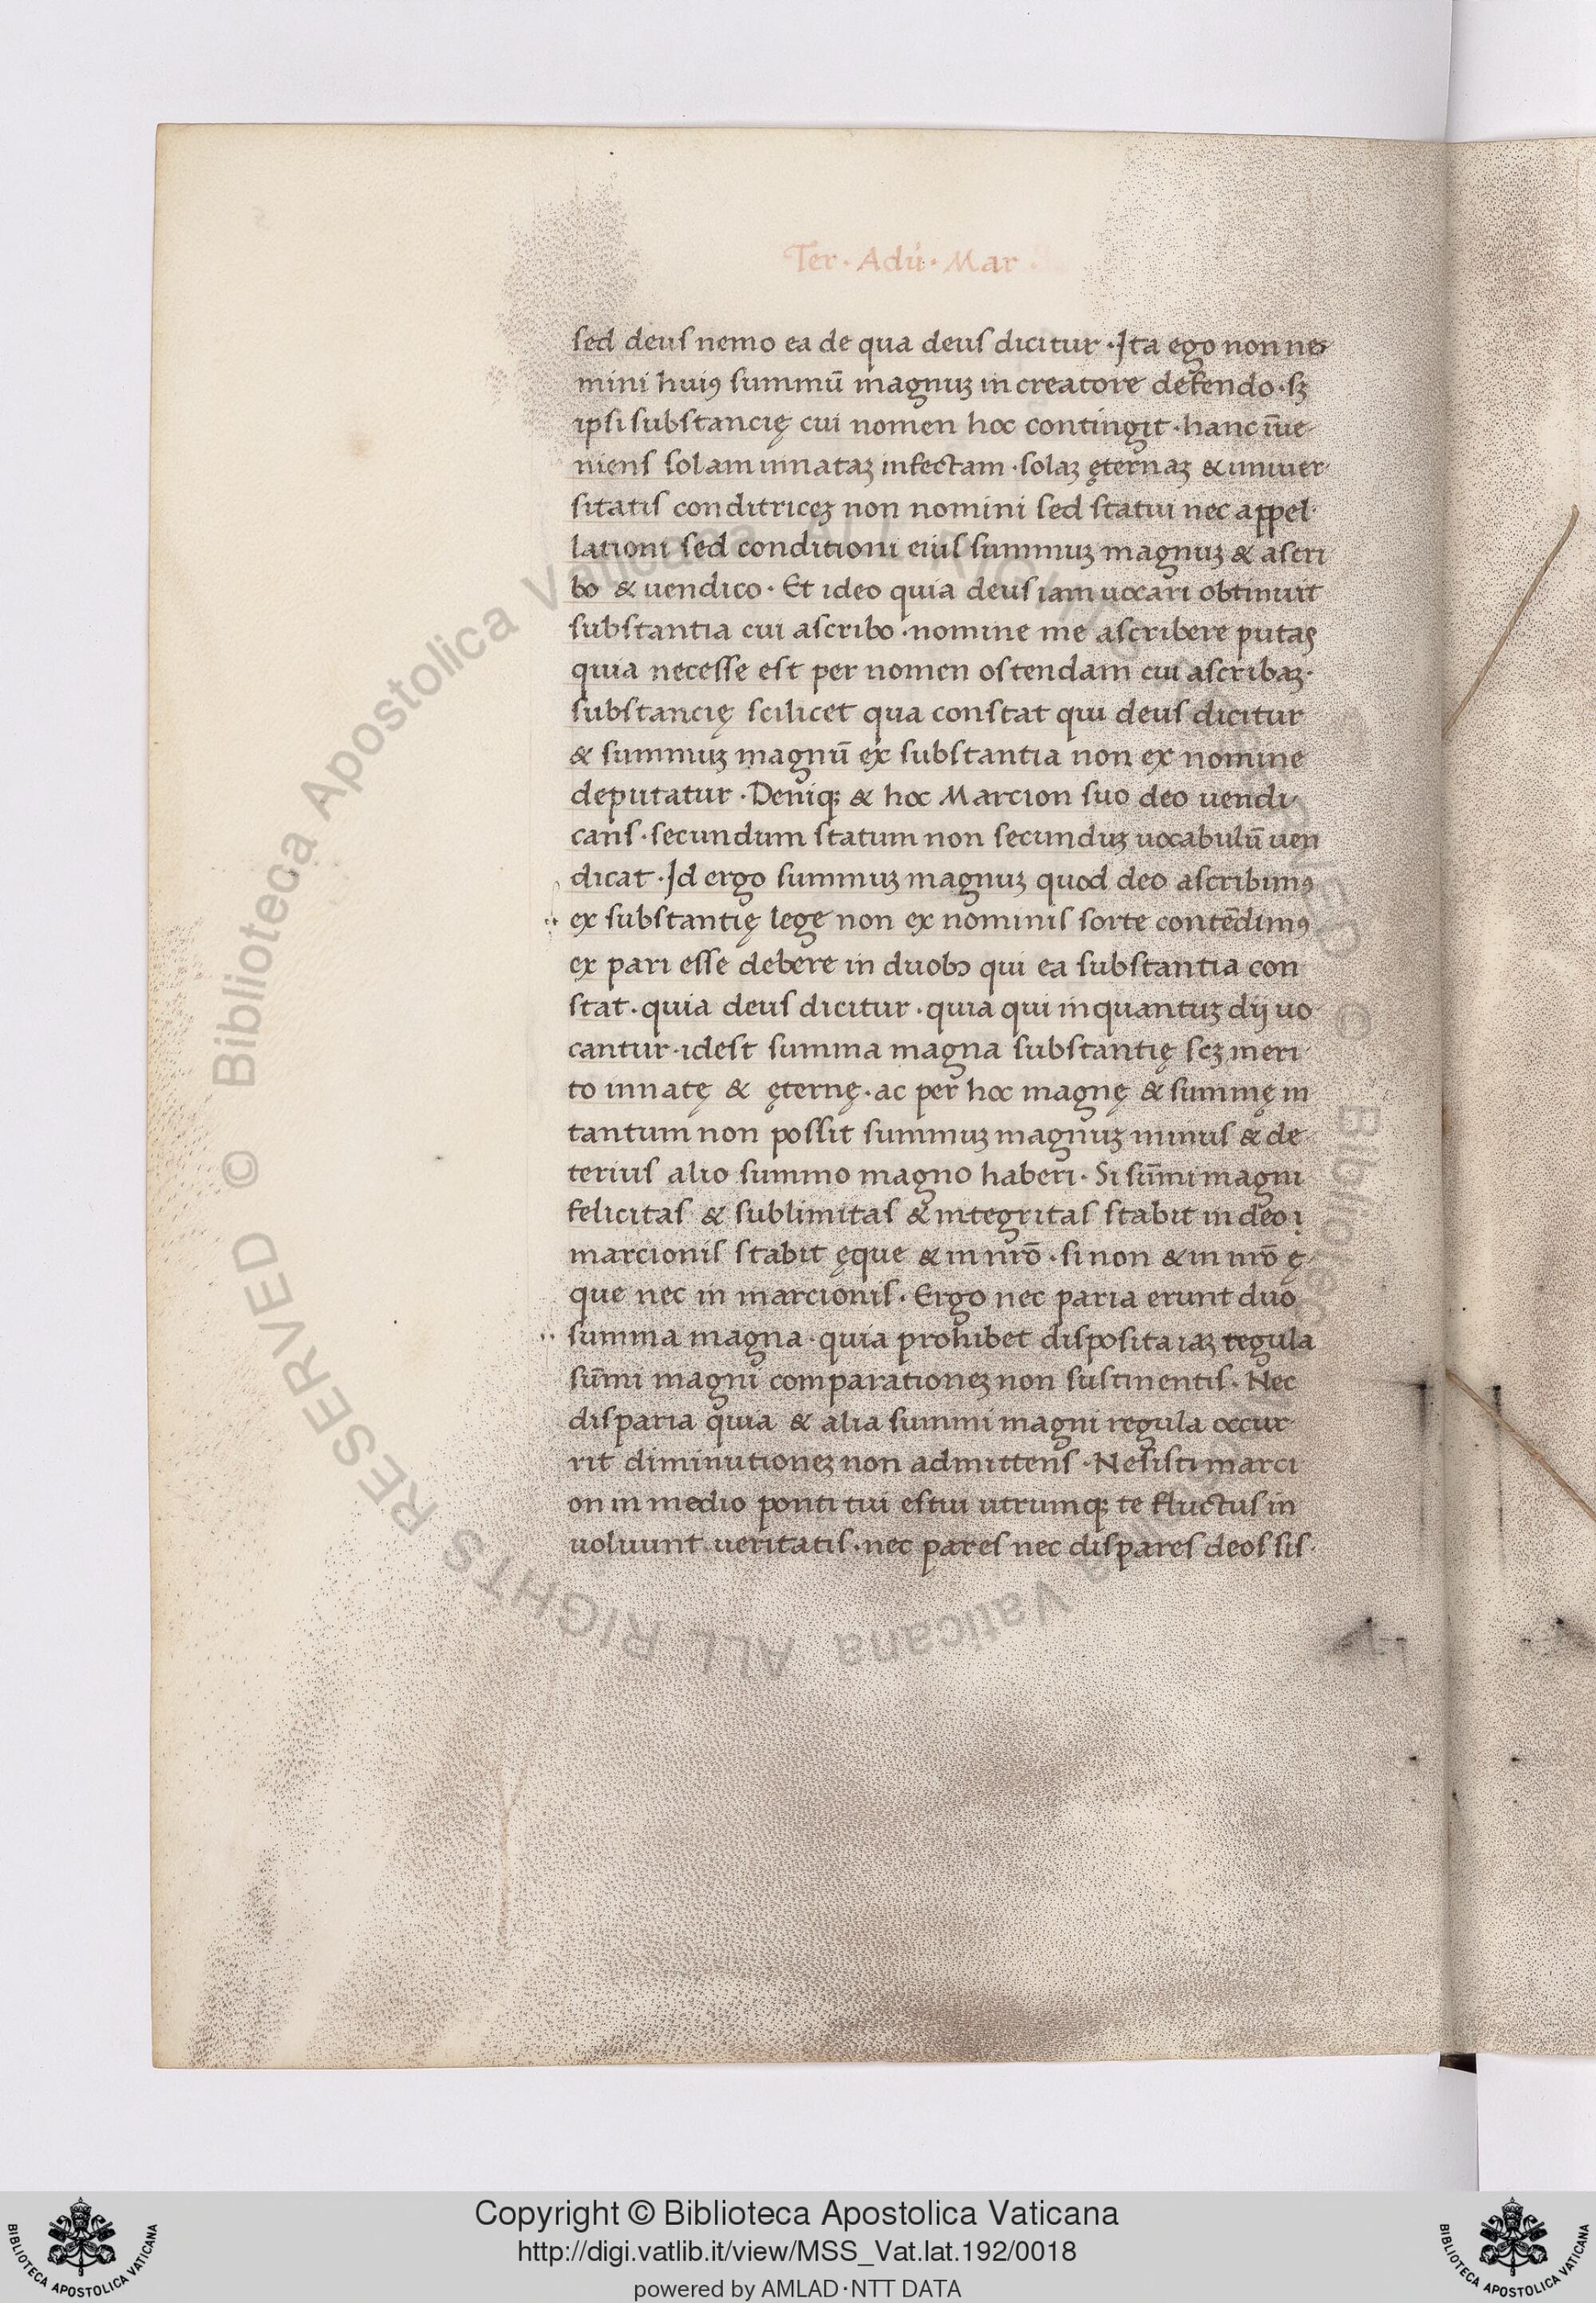 Ter · Adu · Mar ·
sed deus nemo ea de qua deus dicitur · Ita ego non no
mini huiꝰ summū magnuȝ in creatore defendo · sȝ
ipsi substancię cui nomen hoc contingit · hanc īue
niens solam innataȝ infectam · solaȝ ęternaȝ & uniuer
sitatis conditriceȝ non nomini sed statui nec appel
lationi sed conditioni eius summuȝ magnuȝ & ascri
bo & uendico · Et ideo quia deus iam uocari obtinuit
substantia cui ascribo · nomine me ascribere putas
quia necesse est per nomen ostendam cui ascribaȝ ·
substancię scilicet qua constat qui deus dicitur
& summuȝ magnū ex substantia non ex nomine
deputatur · Deniqȝ & hoc Marcion suo deo uendi
cans · secundum statum non secunduȝ uocabulū uen
dicat · Id ergo summuȝ magnuȝ quod deo ascribimꝰ
ex substantię lege non ex nominis sorte contēdimꝰ
ex pari esse debere in duobꝫ qui ea substantia con
stat · quia deus dicitur · quia qui inquantuȝ dij uo
cantur · idest summa magna substantię scȝ meri
to innatę & ęternę · ac per hoc magnę & summę in
tantum non possit summuȝ magnuȝ minus & de
terius alio summo magno haberi · Si sūmi magni
felicitas & sublimitas & integritas stabit in deo
marcionis stabit ęque & in nrō · si non & in nrō ę
que nec in marcionis · Ergo nec paria erunt duo
summa magna · quia prohibet disposita iaȝ regula
sūmi magni comparationeȝ non sustinentis · Nec
disparia quia & alia summi magni regula occur
rit diminutioneȝ non admittens · Hesisti marci
on in medio ponti tui estui utrumqȝ te fluctus in
uoluunt ueritatis · nec pares nec dispares deos sis
© Biblioteca Apostolica Vaticana ALL RIGHTS RESERVED © Biblioteca Apostolica Vaticana ALL RIGHTS RESERVED
Copyright © Biblioteca Apostolica Vaticana
http://digi.vatlib.it/view/MSS_Vat.lat.192/0018
powered by AMLAD·NTT DATA
BIBLIOTECA APOSTOLICA VATICANA
BIBLIOTECA APOSTOLICA VATICANA